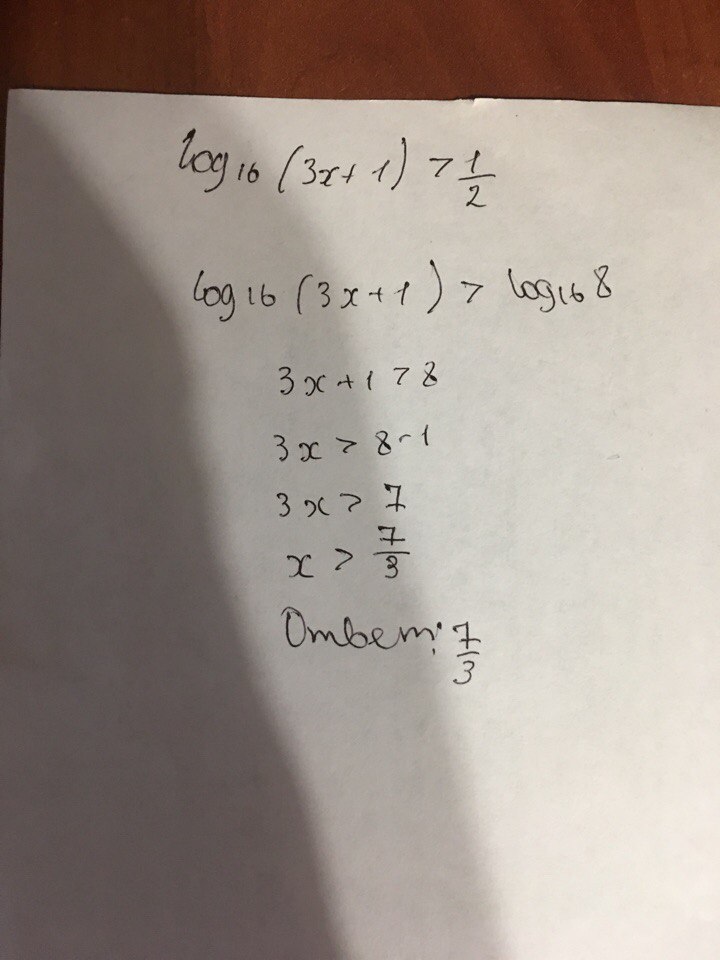 log₁₆ (3x+1) > 1/2
log₁₆ (3x+1) > log₁₆ 8
3x+1 > 8
3x > 8-1
3x > 7
x > 7/3
Ответ: 7/3